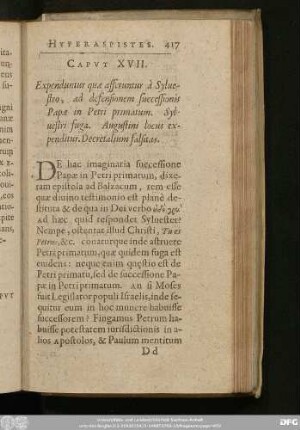 HYPERASPISTES. 417
CAPVT XVII.
Expenduntur quæ afferuntur à Sylue-
stro, ad defensionem successionis
Papæ in Petri primatum. Syl-
uestri fuga. Augustini locus ex-
penditur. Decretalium falsitas.
DE hac imaginaria successione
Papæ in Petri primatum, dixe-
ram epistola ad Balzacum, rem esse
quæ diuino testimonio est planè de-
stituta & de qua in Dei verbo
Ad hæc quid respondet Syluester?
Nempe, ostentat illud Christi, Tu es
Petrus, &c. conaturque inde astruere
Petri primatum, quæ quidem fuga est
euidens: neque enim quæstio est de
Petri primatu, sed de successione Pa-
pæ in Petri primatum. An si Moses
fuit Legislator populi Israelis, inde se-
quitur eum in hoc munere habuisse
successorem? Fingamus Petrum ha-
buisse potestatem iurisdictionis in a-
lios Apostolos, & Paulum mentitum
Dd
PVT
DFG